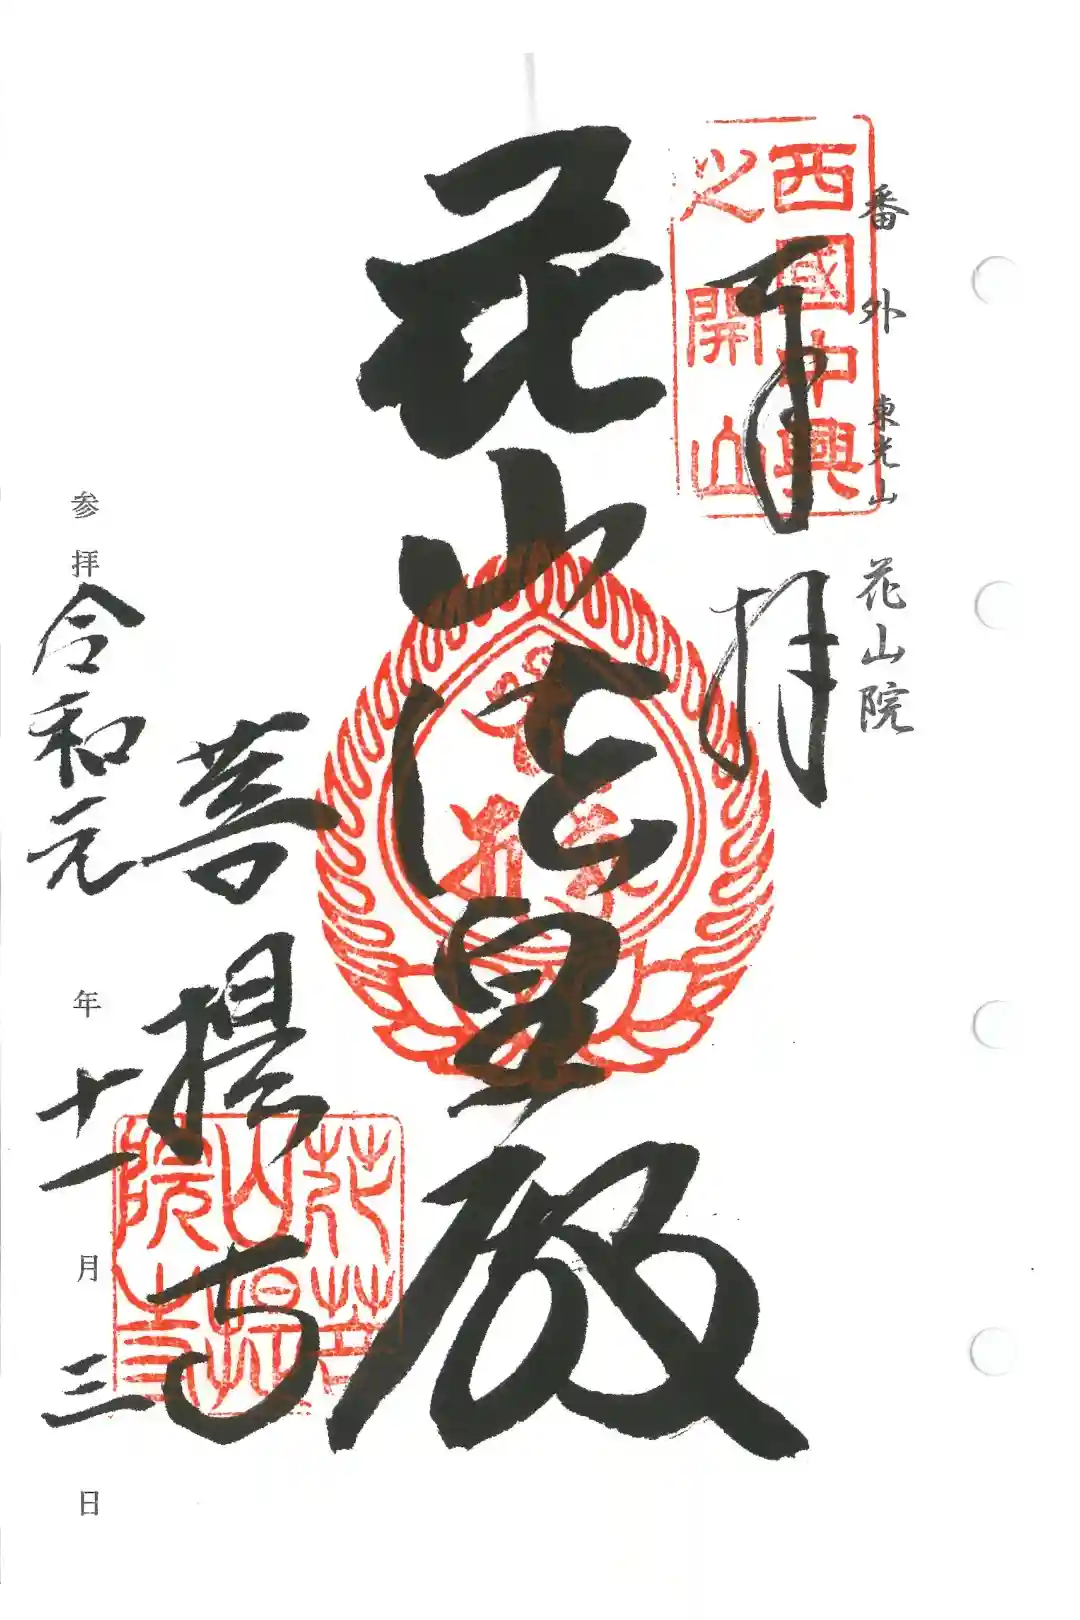 番外 東光山 花山院
西國中興
之開山
奉拝
花山法皇殿
菩提寺
花山院菩提寺
参拝 令和元年十一月三日